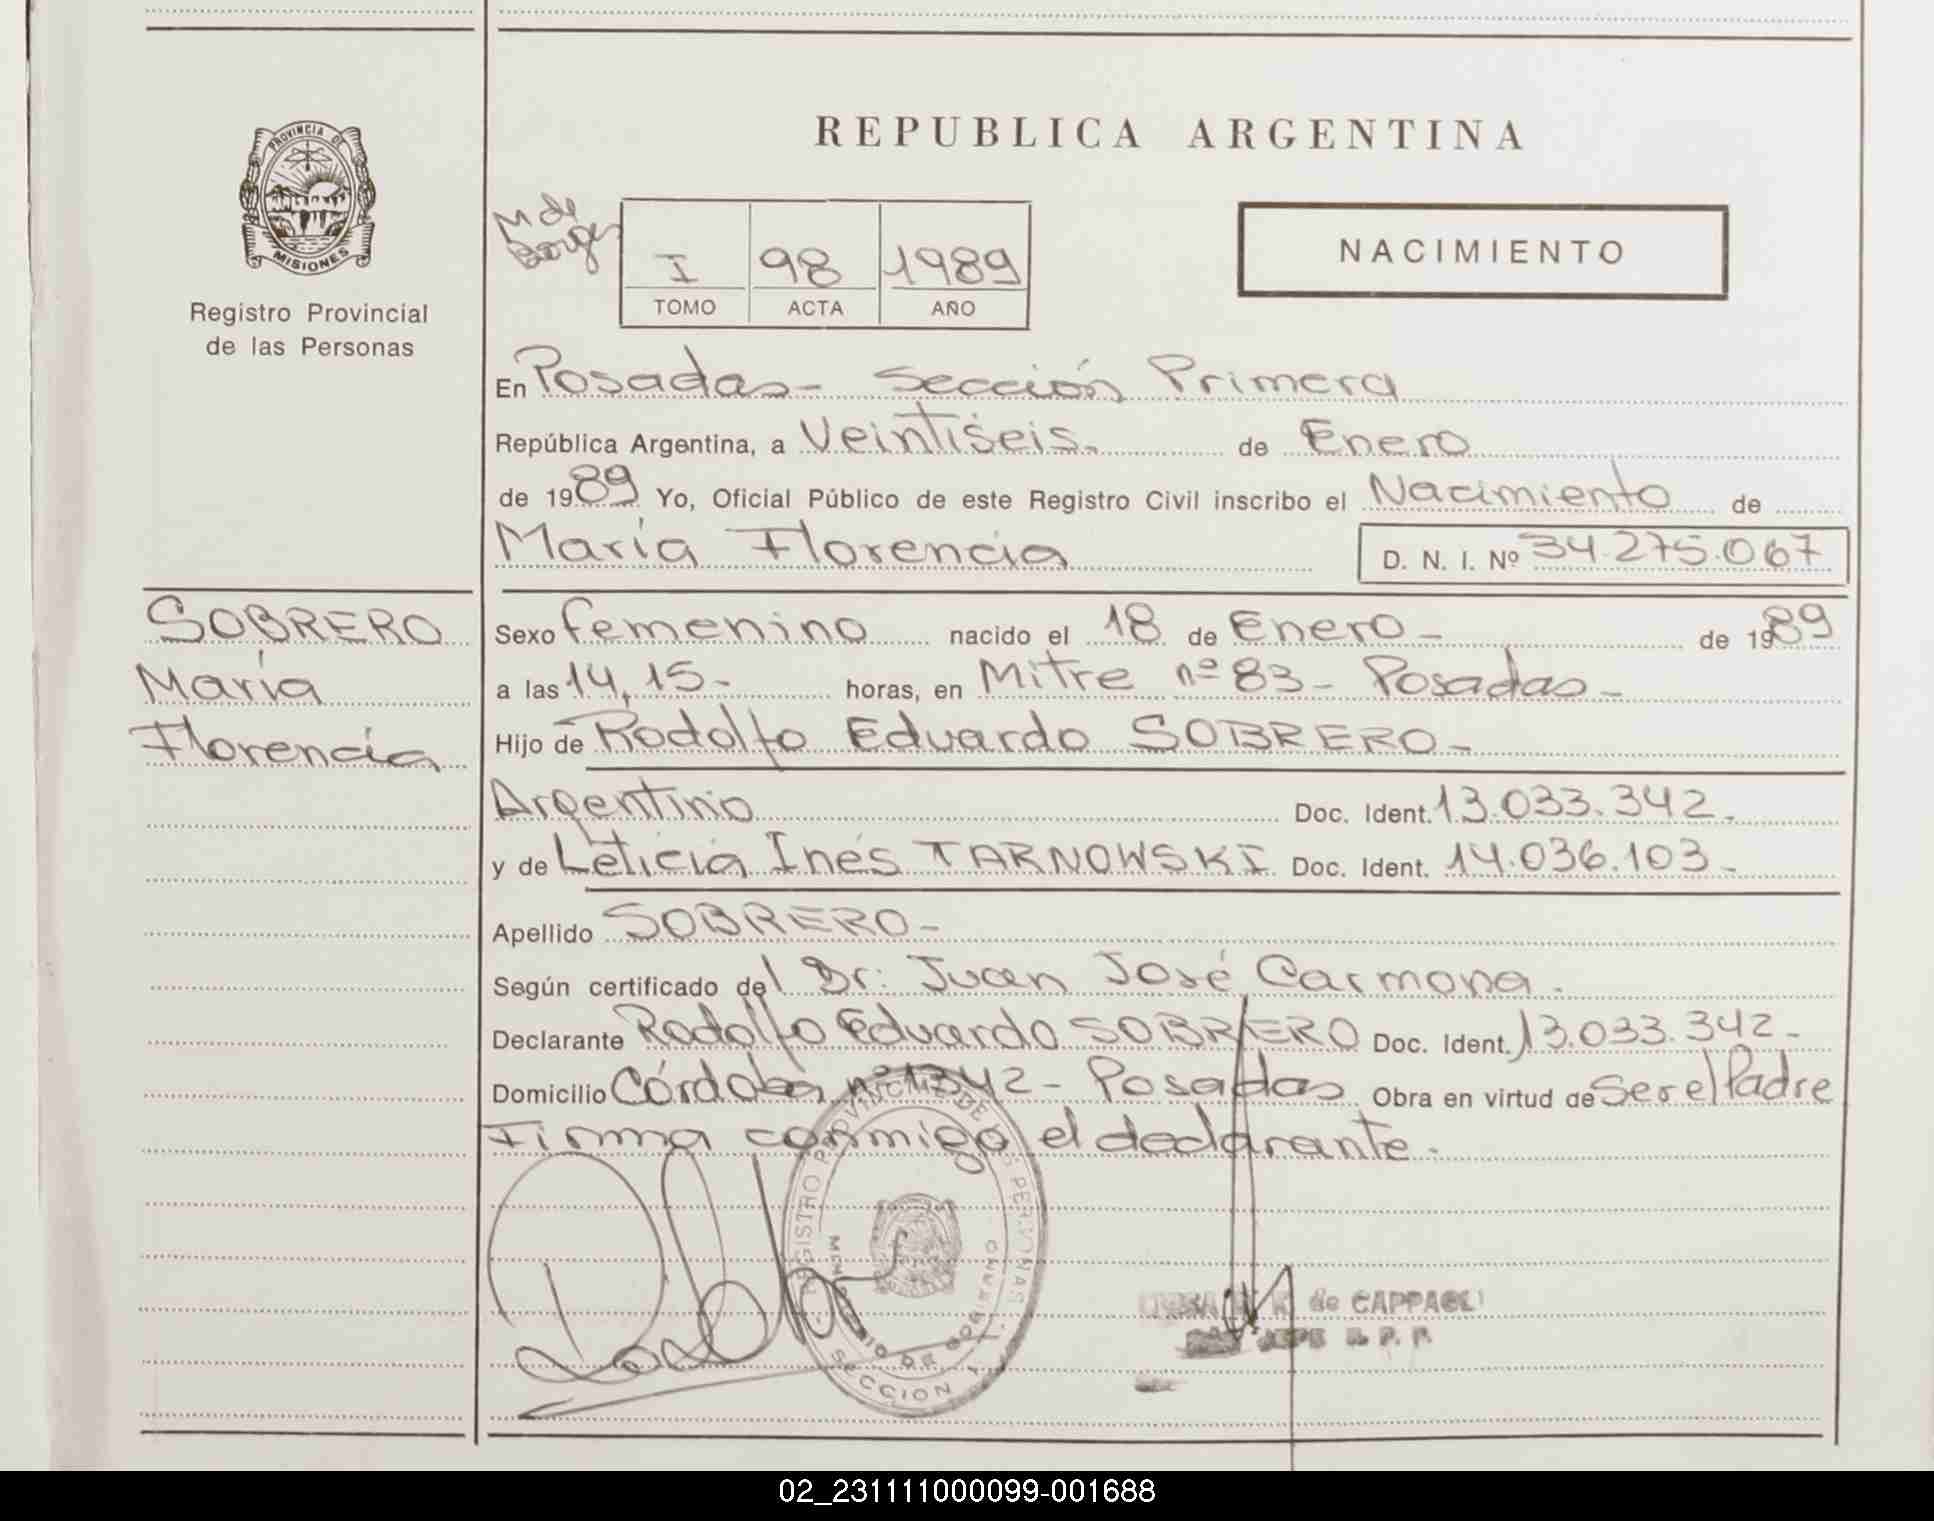 REPUBLICA ARGENTINA
PROVINCIA DE
MISIONES
Registro Provincial
de las Personas
M de
Borges
I 98 1989
TOMO ACTA AÑO
NACIMIENTO
En Posadas - Sección Primera
República Argentina, a Veintiseis. de Enero
de 1989 Yo, Oficial Público de este Registro Civil inscribo el Nacimiento de
María Florencia D. N. I. Nº 34.275.067
SOBRERO
María
Florencia
Sexo femenino nacido el 18 de Enero - de 1989
a las 14,15- horas, en Mitre nº 83 - Posadas -
Hijo de Rodolfo Eduardo SOBRERO -
Argentino Doc. Ident. 13.033.342.
y de Leticia Inés TARNOWSKI Doc. Ident. 14.036.103 -
Apellido SOBRERO -
Según certificado del Dr. Juan José Carmona.
Declarante Rodolfo Eduardo SOBRERO Doc. Ident. 13.033.342 -
Domicilio Córdoba nº 1342 - Posadas Obra en virtud de Ser el Padre
Firma conmigo el declarante.
REGISTRO PROVINCIAL DE LAS PERSONAS
MINISTERIO DE GOBIERNO
SECCION 1
de CAPPAGLI
JEFE R. P. P.
02_231111000099-001688